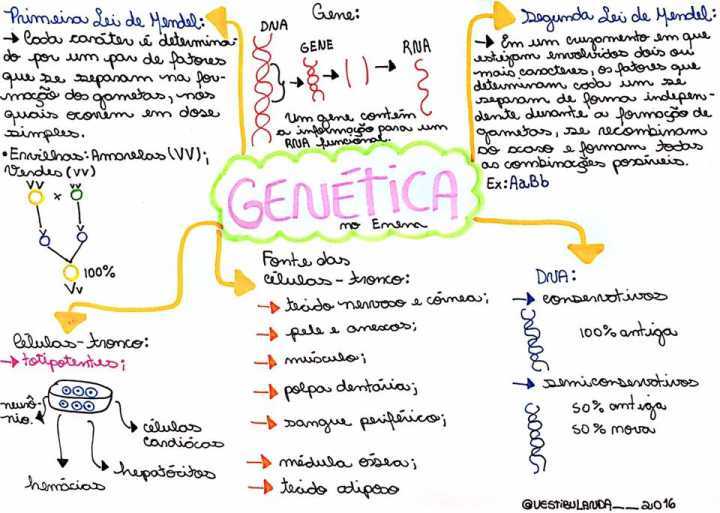 Primeira Lei de Mendel:
→ Cada caráter é determina-
do por um par de fatores
que se separam na for-
mação dos gametas, nos
quais ocorrem em dose
simples.
• Ervilhas: Amarelas (VV);
Verdes (vv)
VV vv
x
100%
Vv
Gene:
DNA
GENE
RNA
Um gene contém
a informação para um
RNA funcional.
Segunda Lei de Mendel:
→ Em um cruzamento em que
estejam envolvidos dois ou
mais caracteres, os fatores que
determinam cada um se
separam de forma indepen-
dente durante a formação de
gametas, se recombinam
ao acaso e formam todas
as combinações possíveis.
Ex: AaBb
GENÉTICA
no Enem
Células-tronco:
→ totipotentes;
neurô-
nio.
células
cardíacas
hepatócitos
hemácias
Fonte das
células-tronco:
→ tecido nervoso e córnea;
→ pele e anexos;
→ músculo;
→ polpa dentária;
→ sangue periférico;
→ médula óssea;
→ tecido adiposo
DNA:
→ conservativos
100% antiga
→ semiconservativos
50% antiga
50% nova
@VESTIBULANDA__2016